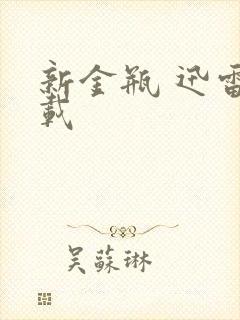 新金瓶 迅雷
載
吴蘇琳